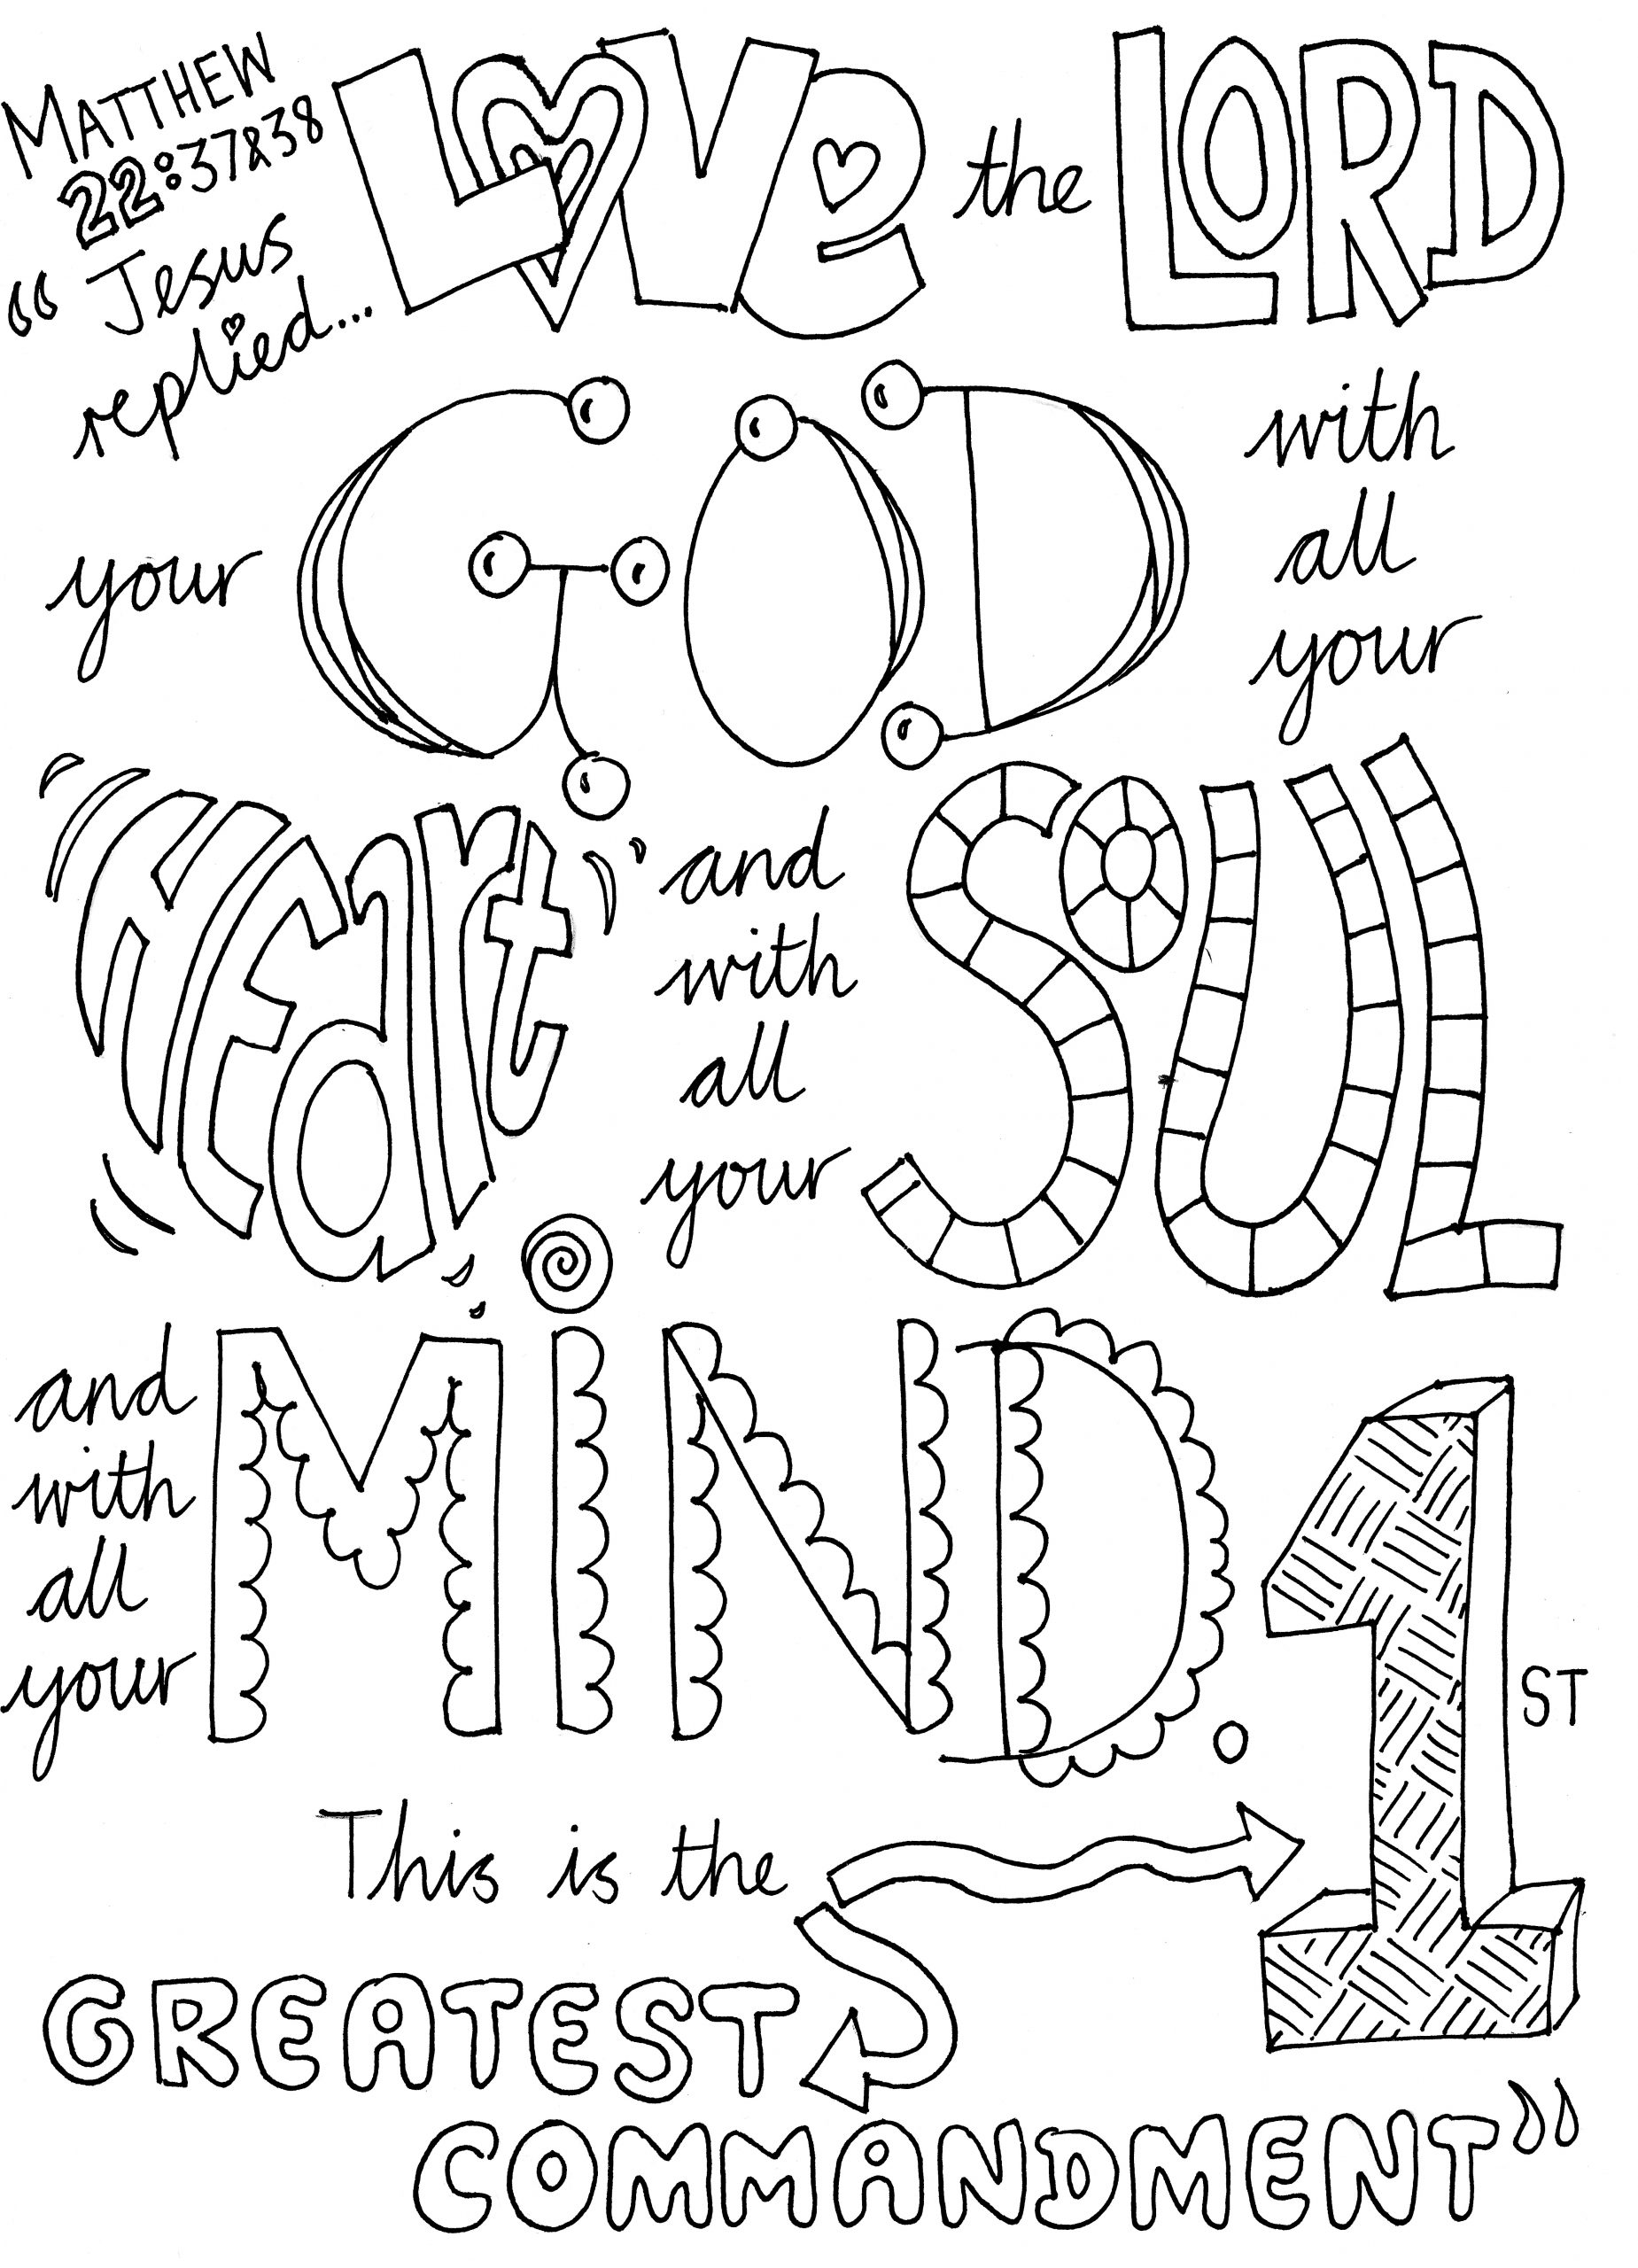 MATTHEW
22:37&38
“Jesus
replied...
LOVe the LORD
your GOD with
all
your
HEart and
with
all
your
SOUL
and
with
all
your
MiND.
This is the
1ST
GREATEST
COMMANDMENT”